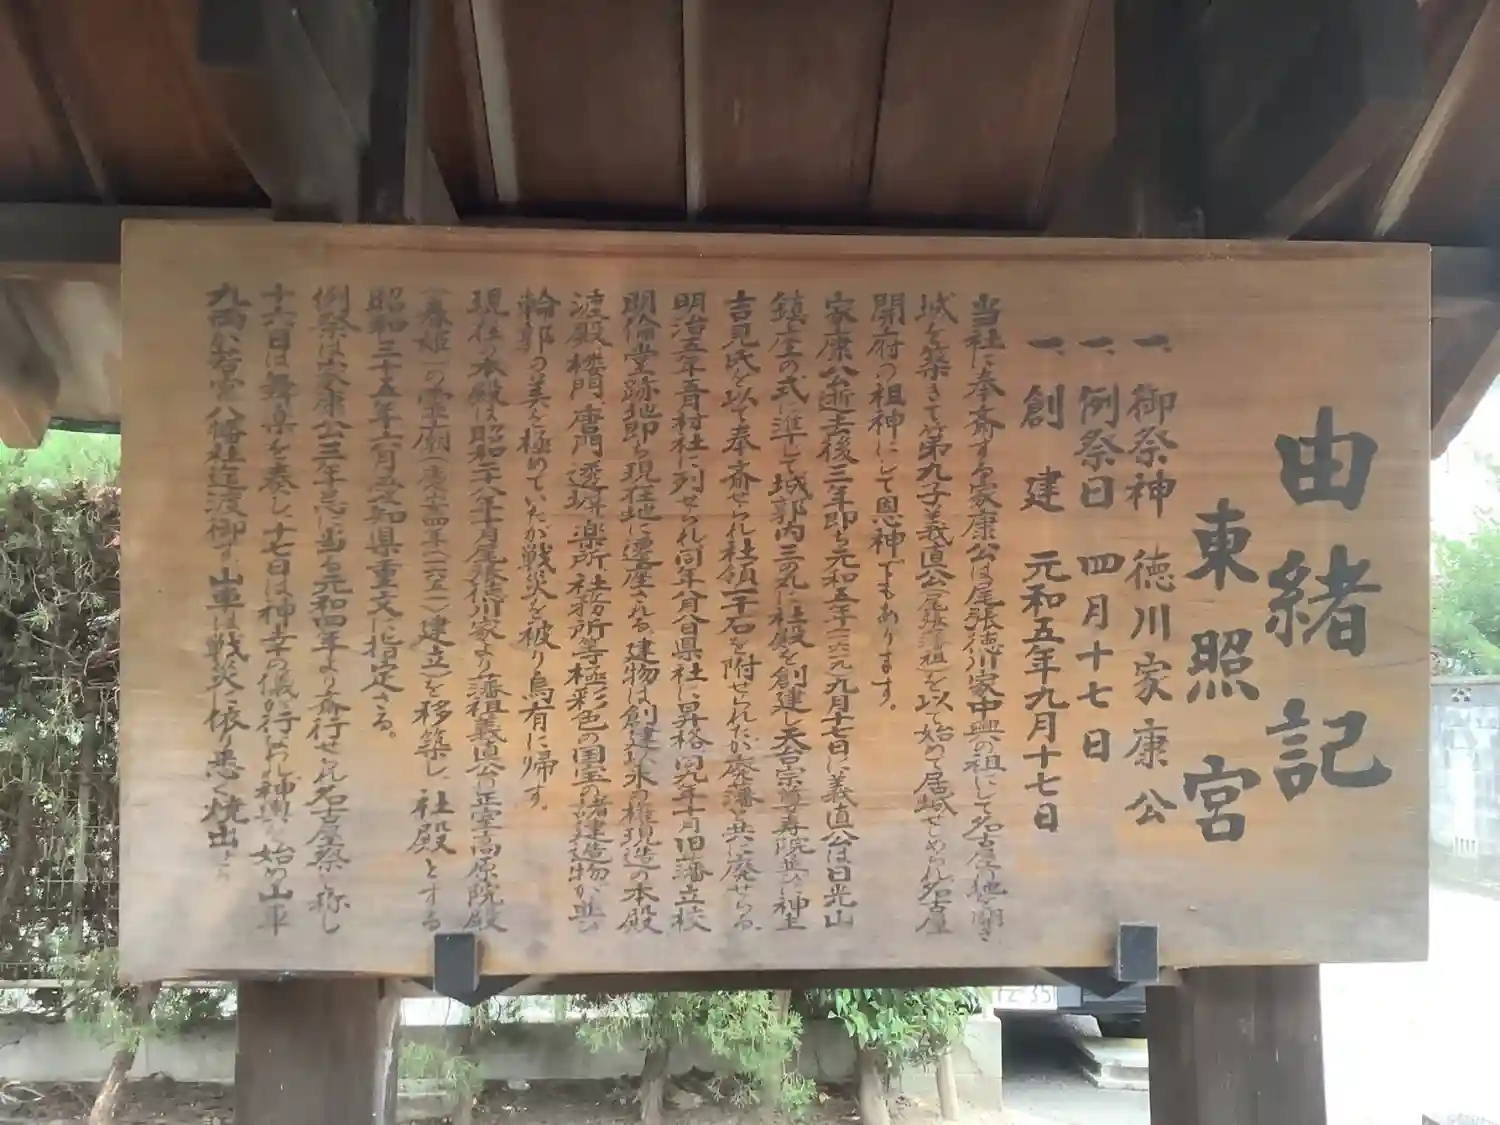 由緒記
東照宮
一、御祭神 徳川家康公
一、例祭日 四月十七日
一、創建 元和五年九月十七日
当社に奉斎する家康公は尾張徳川家中興の祖にして名古屋の地を開き
城を築きて第九子義直公(尾張藩祖)を以て始めて居城せしめられ名古屋
開府の祖神にして恩神でもあります。
家康公逝去後三年即ち元和五年(一六一九)九月十七日に義直公は日光山
鎮座の式に準して城郭内三の丸に社殿を創建し天台宗尊寿院並に神主
吉見氏を以て奉斎せられ社領一千石を附せられたが廃藩と共に廃せらる。
明治五年五月村社に列せられ同年八月八日県社に昇格同九年十月旧藩立校
明倫堂跡地即ち現在地に遷座される 建物は創建以来の権現造の本殿
渡殿、楼門、唐門、透塀、楽所、社務所等極彩色の国宝の諸建造物が並び
輪郭の美を極めていたが戦災を被り烏有に帰す。
現在の本殿は昭和二十八年十月尾張徳川家より藩祖義直公正室高原院殿
(春姫)の霊廟(慶安四年(一六五一)建立)を移築し、社殿とする
昭和三十五年六月愛知県重文に指定さる。
例祭は家康公三年忌に当る元和四年より斎行せられ名古屋祭と称し
十六日は舞楽を奏し、十七日は神幸の儀が行われ神輿を始め山車
九両が若宮八幡社迄渡御す 山車は戦災に依り悉く焼出
12-35